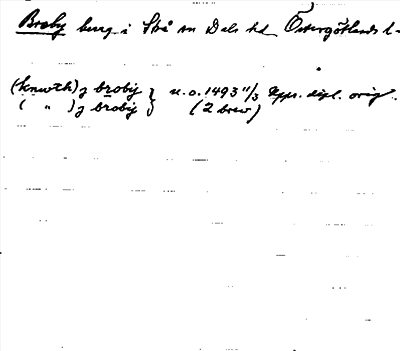 Broby burg i Strå sn Dals hd Östergötlands l-
(knwth) j broby } u.o. 1493 11/3 Upps. dipl. orig.
( " ) j broby } (2 brev)